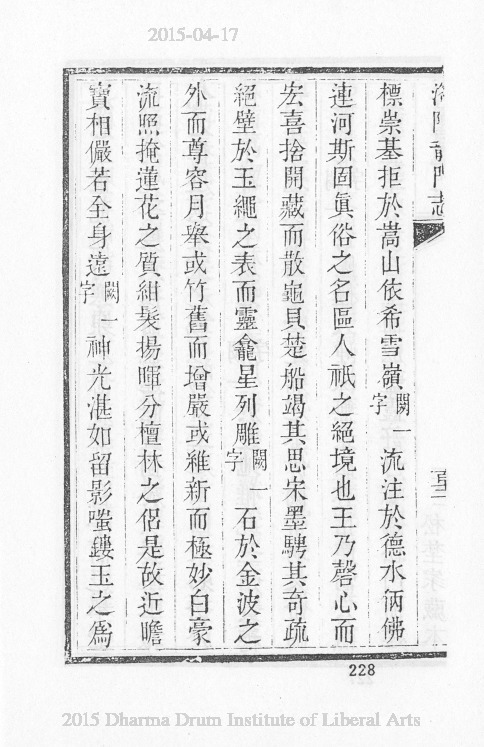 2015-04-17
洛陽龍門志
標崇基拒於嵩山依希雪嶺闕一字流注於德水㑂佛
連河斯固眞俗之名區人祇之絕境也王乃罄心而
宏喜捨開藏而散龜貝楚船竭其思宋墨騁其奇疏
絕壁於玉繩之表而靈龕星列雕闕一字石於金波之
外而尊容月舉或竹舊而增嚴或維新而極妙白豪
流照掩蓮花之質紺髮揚暉分檀林之侶是故近瞻
寶相儼若全身遠闕一字神光湛如留影嗤鏤玉之爲
228
2015 Dharma Drum Institute of Liberal Arts